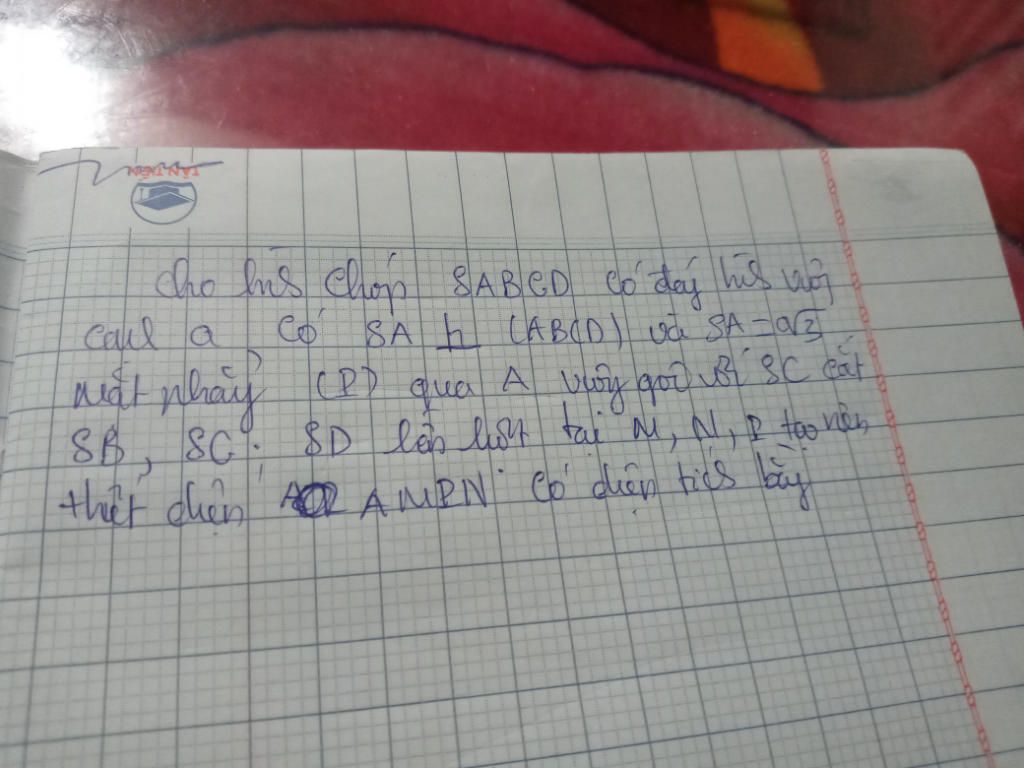 TÂN TIẾN
Cho hìh chóp SABCD có đáy hìh vuôg
cạnh a có SA ⊥ (ABCD) và SA = a√2
mặt phẳg (P) qua A vuôg góc với SC cắt
SB, SC, SD lần lượt tại M, N, P tạo nên
thiết diện AMPN có diện tích bằg